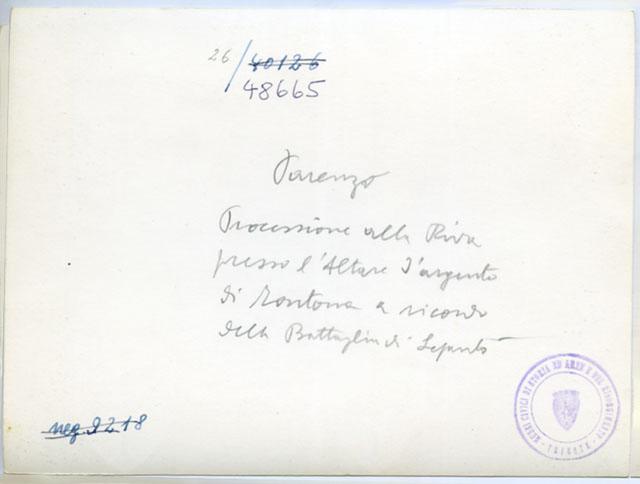 26/ 40126
48665
Parenzo
Processione alla Riva
presso l'Altare d'argento
di Montona a ricordo
della Battaglia di Lepanto
neg. 2218
MUSEI CIVICI DI STORIA ED ARTE E DEL RISORGIMENTO - TRIESTE -